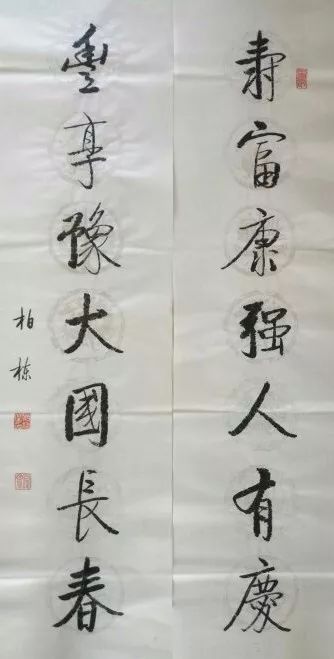 寿富康强人有慶
豐亨豫大國長春
柏栋